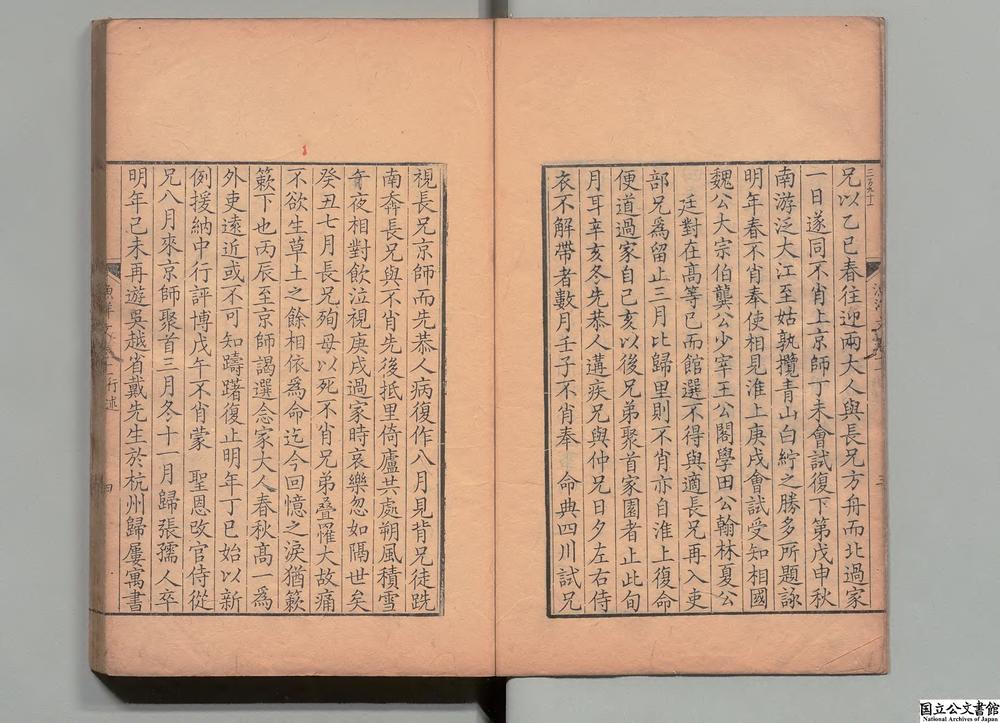 兄以乙巳春往迎兩大人與長兄方舟而北過家
一日遂同不肖上京師丁未會試復下第戊申秋
南游泛大江至姑孰攬青山白紵之勝多所題詠
明年春不肖奉使相見淮上庚戌會試受知相國
魏公大宗伯龔公少宰王公閣學田公翰林夏公
廷對在高等已而館選不得與適長兄再入吏
部兄爲留止三月比歸里則不肖亦自淮上復命
便道過家自己亥以後兄弟聚首家園者止此旬
月耳辛亥冬先恭人遘疾兄與仲兄日夕左右侍
衣不解帶者數月壬子不肖奉 命典四川試兄
視長兄京師而先恭人病復作八月見背兄徒跣
南奔長兄與不肖先後抵里倚廬共處朔風積雪
午夜相對飲泣視庚戌過家時哀樂忽如隔世矣
癸丑七月長兄殉母以死不肖兄弟叠罹大故痛
不欲生草土之餘相依爲命迄今回憶之淚猶簌
簌下也丙辰至京師謁選念家大人春秋高一爲
外吏遠近或不可知躊躇復止明年丁巳始以新
例援納中行評博戊午不肖蒙 聖恩改官侍從
兄八月來京師聚首三月冬十一月歸張孺人卒
明年己未再遊吳越省戴先生於杭州歸屢寓書
行述
四
国立公文書館
National Archives of Japan